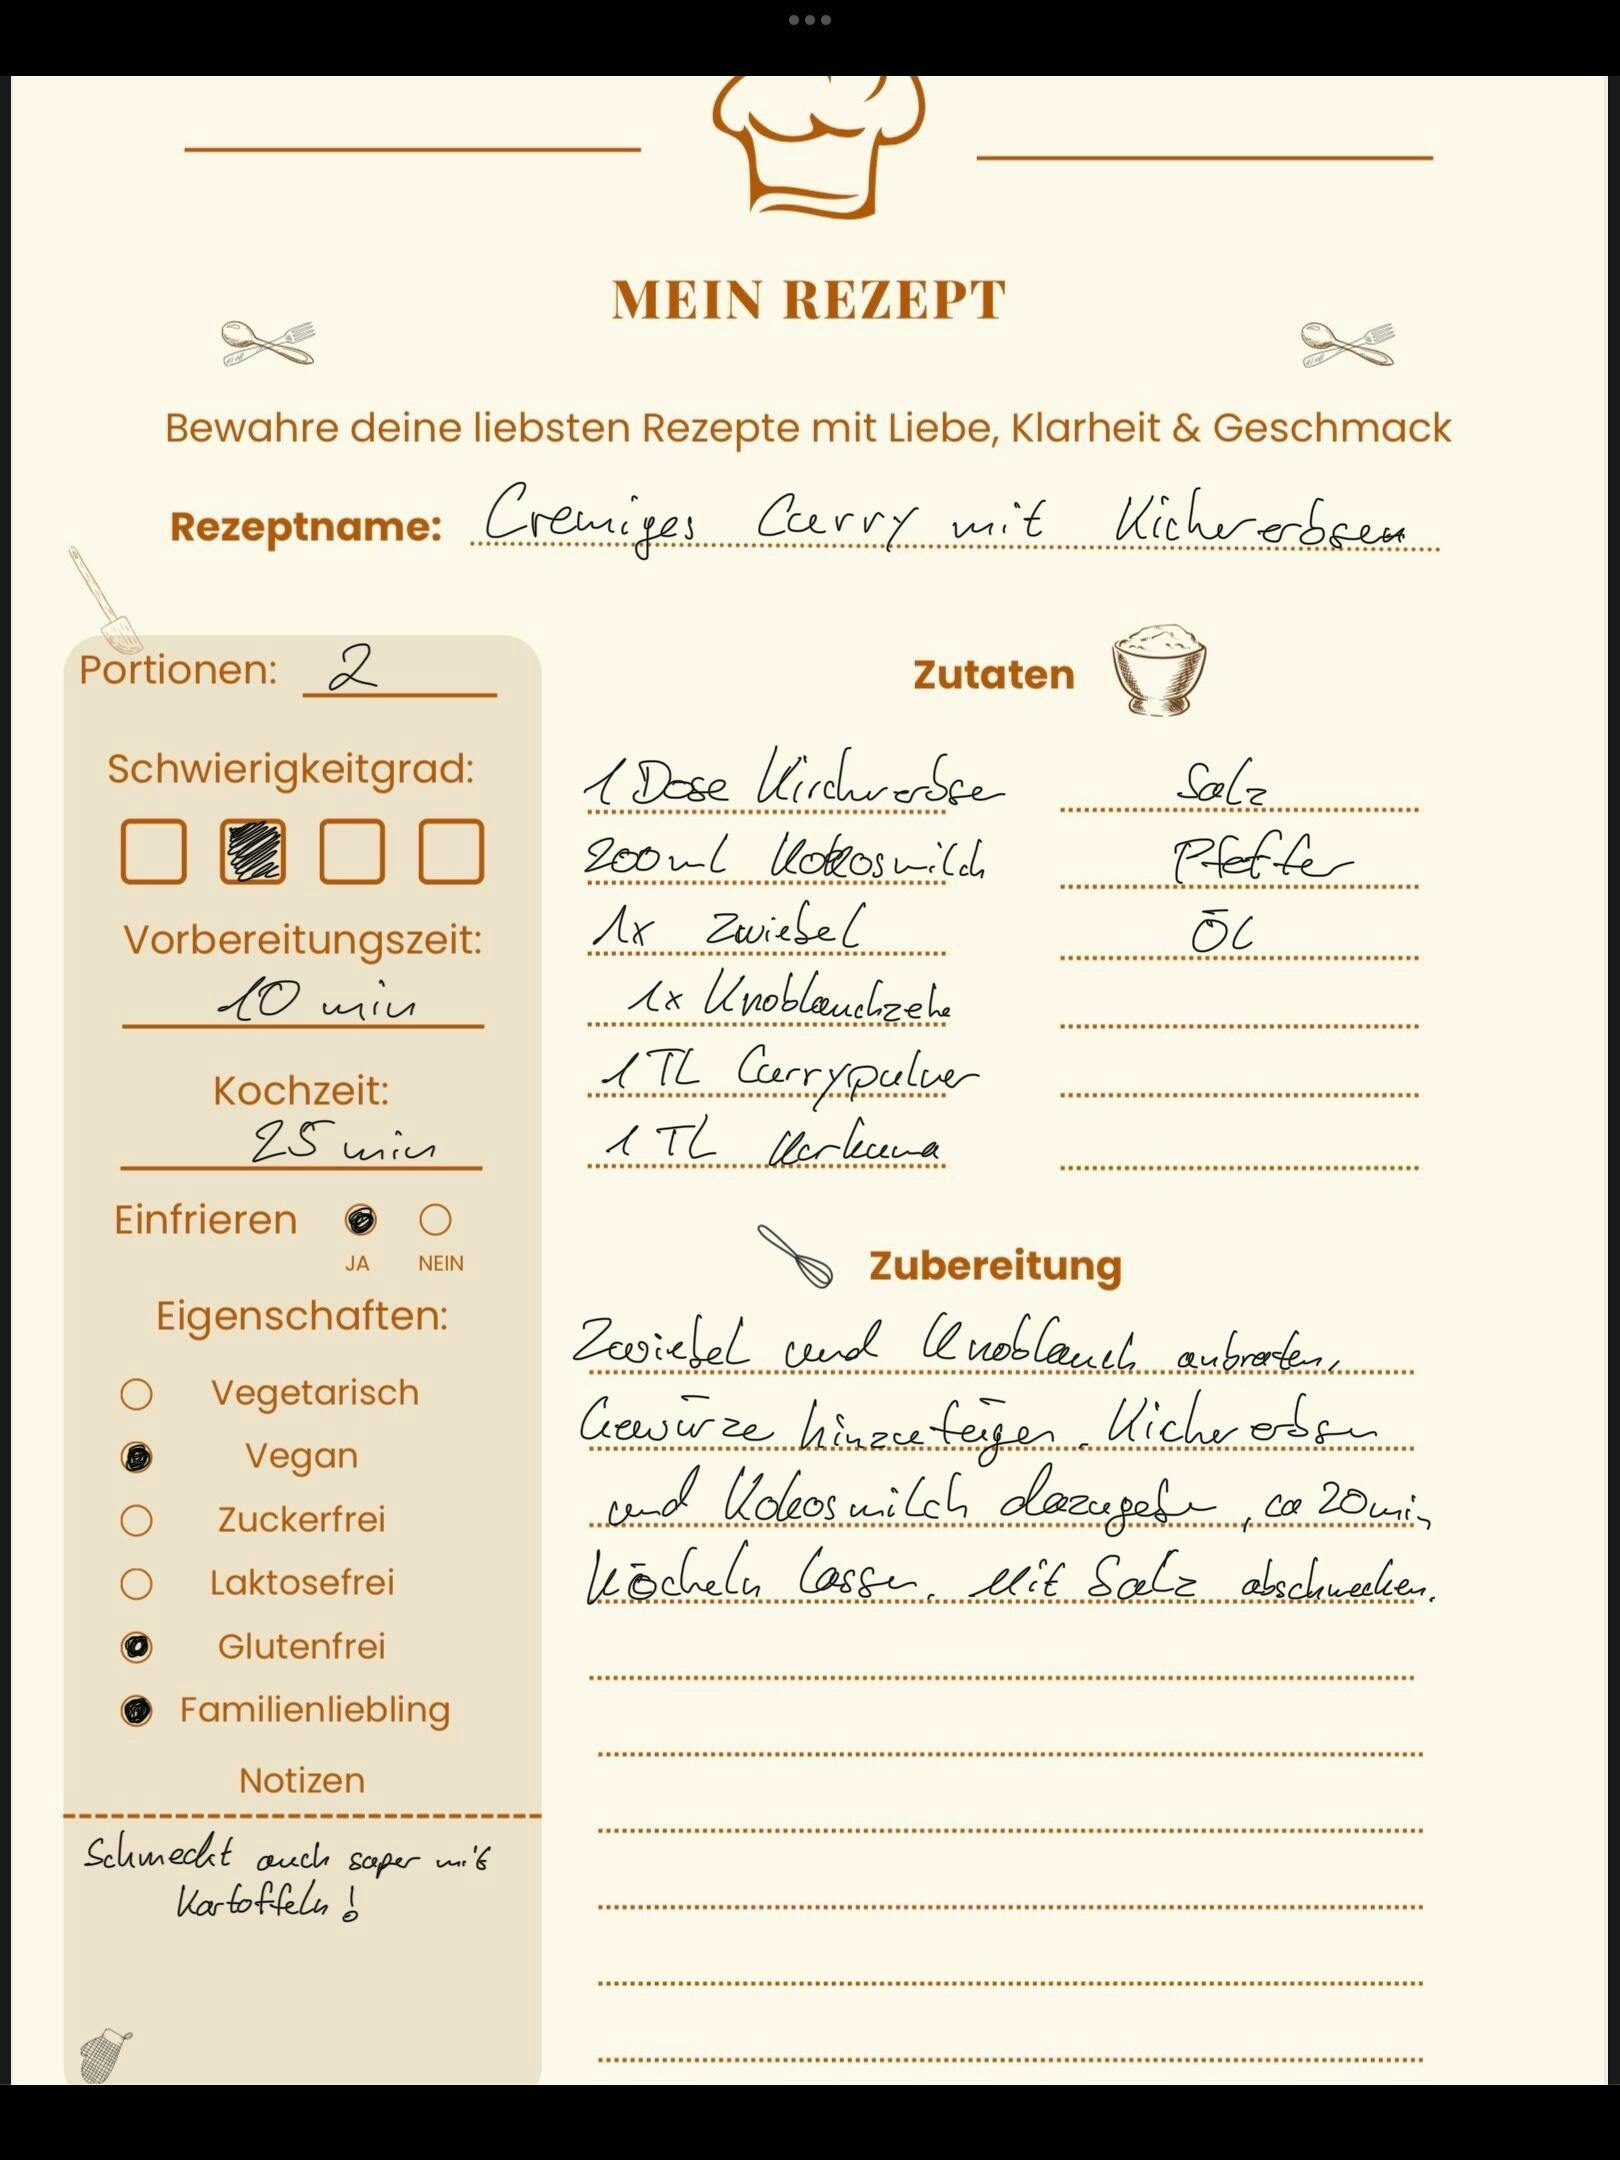 MEIN REZEPT
Bewahre deine liebsten Rezepte mit Liebe, Klarheit & Geschmack
Rezeptname: Cremiges Curry mit Kichererbsen
Portionen: 2
Schwierigkeitgrad:
Vorbereitungszeit:
10 min
Kochzeit:
25 min
Einfrieren
JA NEIN
Eigenschaften:
Vegetarisch
Vegan
Zuckerfrei
Laktosefrei
Glutenfrei
Familienliebling
Notizen
Schmeckt auch super mit
Kartoffeln!
Zutaten
1 Dose Kirchererbsen
200 ml Kokosmilch
1x Zwiebel
1x Knoblauchzehe
1 TL Currypulver
1 TL Kurkuma
Salz
Pfeffer
Öl
Zubereitung
Zwiebel und Knoblauch anbraten,
Gewürze hinzufügen. Kichererbsen
und Kokosmilch dazugeben, ca 20 min
köcheln lassen. Mit Salz abschmecken.